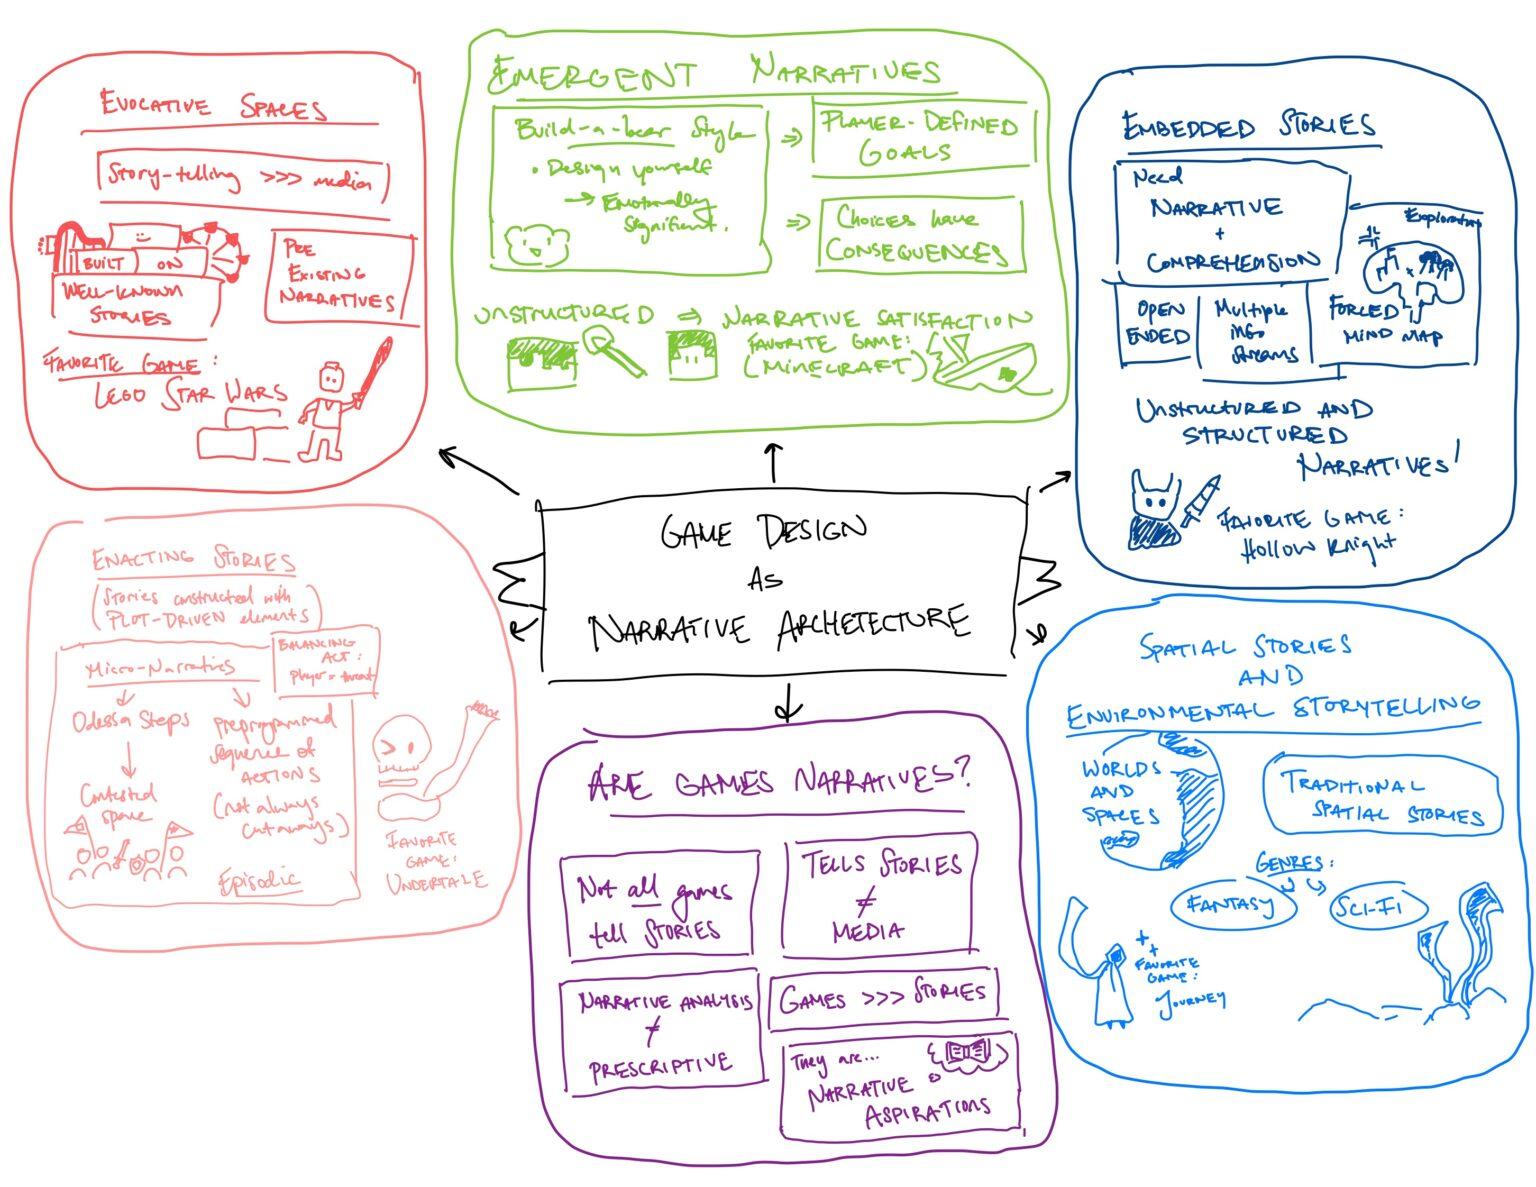 EVOCATIVE SPACES
Story-telling >>> media
BUILT ON
WELL-KNOWN
STORIES
PRE
EXISTING
NARRATIVES
FAVORITE GAME:
LEGO STAR WARS
EMERGENT NARRATIVES
Build-a-bear Style
• Design yourself
→ Emotionally
significant.
⇒ PLAYER-DEFINED
GOALS
⇒ CHOICES have
CONSEQUENCES
UNSTRUCTURED ⇒ NARRATIVE SATISFACTION
FAVORITE GAME:
(MINECRAFT)
EMBEDDED STORIES
Need
NARRATIVE
+
COMPREHENSION
Exploration
OPEN
ENDED
Multiple
info
streams
FORCED
MIND MAP
UNSTRUCTURED AND
STRUCTURED
NARRATIVES!
FAVORITE GAME:
Hollow Knight
GAME DESIGN
AS
NARRATIVE ARCHETECTURE
ENACTING STORIES
(Stories constructed with
PLOT-DRIVEN elements)
Micro-Narratives
BALANCING
ACT:
Player = threat
Odessa Steps
Contested
space
preprogrammed
sequence of
ACTIONS
(not always
cutaways)
Episodic
FAVORITE
GAME:
UNDERTALE
ARE GAMES NARRATIVES?
Not all games
tell STORIES
TELLS STORIES
≠
MEDIA
NARRATIVE ANALYSIS
≠
PRESCRIPTIVE
GAMES >>> STORIES
They are...
NARRATIVE
ASPIRATIONS
SPATIAL STORIES
AND
ENVIRONMENTAL STORYTELLING
WORLDS
AND
SPACES
TRADITIONAL
SPATIAL STORIES
GENRES:
FANTASY
SCI-FI
FAVORITE
GAME:
JOURNEY